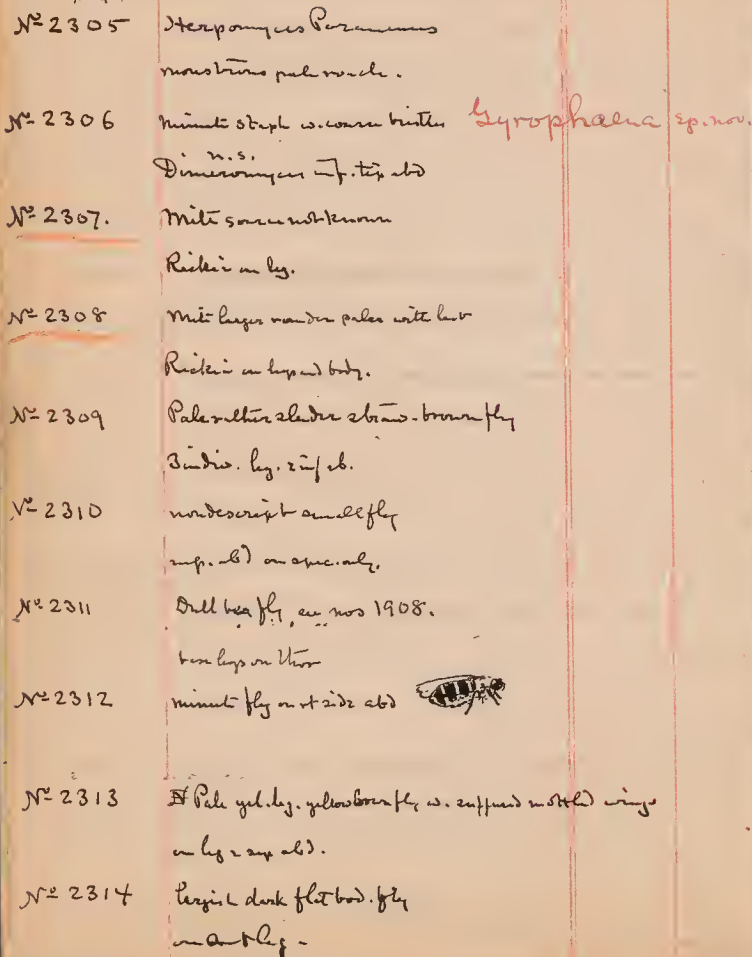 № 2305 Herpomyces Paranensis
monstrous pale roach.
№ 2306 Minute staph w. coarse bristles Gyrophaena sp. nov.
n.s.
Dimeromyces inf. tip abd
№ 2307. Mite source not known
Rickia on leg.
№ 2308 Mite larger rounder paler with last
Rickia on legs and body.
№ 2309 Pale rather slender straw-brown fly
3 indiv. leg. & inf ab.
№ 2310 nondescript small fly
sup. abd on spec. only.
№ 2311 Dull fly, nos 1908.
base legs on thor
№ 2312 minute fly on rt side abd
№ 2313 Pale yel. leg. yellow brown fly w. mottled wings
on leg & sup abd.
№ 2314 largish dark flat bod. fly
on ant leg -